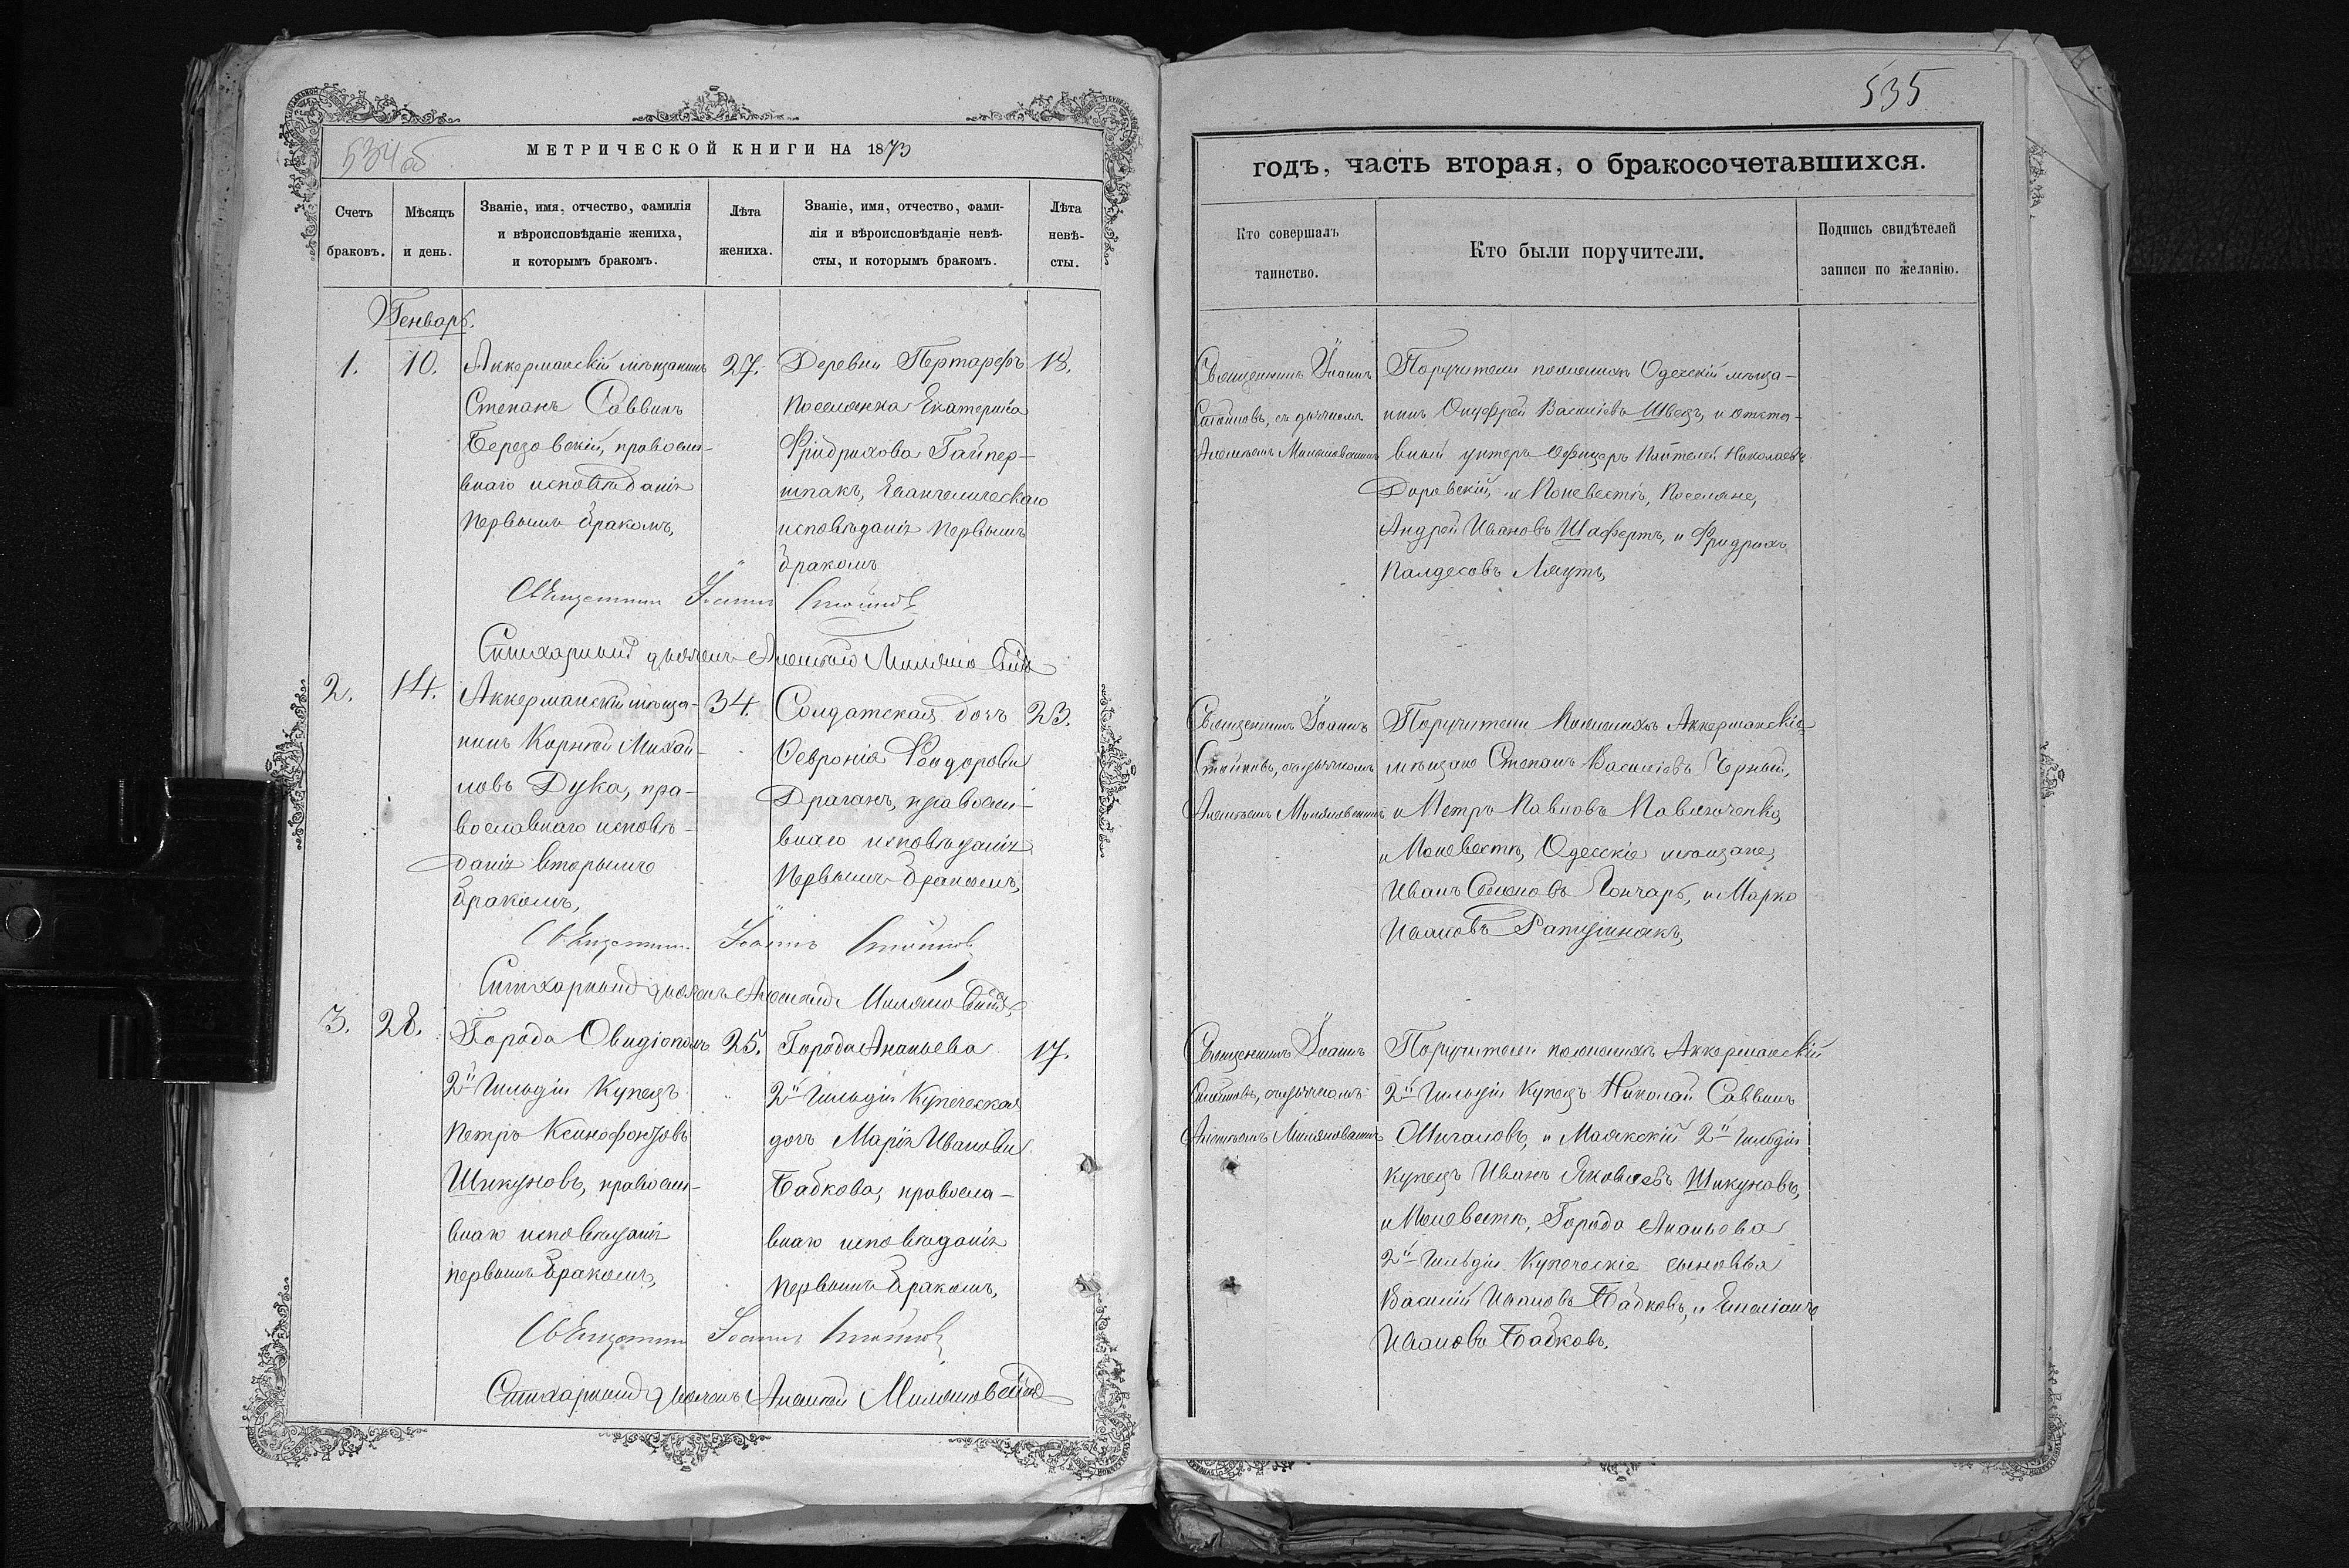 534 об
МЕТРИЧЕСКОЙ КНИГИ НА 1873
Счетъ
браковъ.
Мѣсяцъ
и день.
Званіе, имя, отчество, фамилія
и вѣроисповѣданіе жениха,
и которымъ бракомъ.
Лѣта
жениха.
Званіе, имя, отчество, фами-
лія и вѣроисповѣданіе невѣ-
сты, и которымъ бракомъ.
Лѣта
невѣ-
сты.
Генварь.
1.
10.
Аккерманскій мѣщанинъ
Степанъ Саввинъ
Березовскій, правосла-
внаго исповѣданія
первымъ бракомъ,
27.
Деревни
поселянка Екатерина
Фридрихова Гайпер-
шпакъ, Евангелическаго
исповѣданія первымъ
бракомъ
18.
Священникъ Іоаннъ Стойковъ
Стихарный дьячекъ Алексѣй
2.
14.
Аккерманскій мѣща-
нинъ Корнѣй Михай-
ловъ Дука, пра-
вославнаго исповѣ-
данія вторымъ
бракомъ,
34.
Солдатская дочь
Февронія
Драганъ, правосла-
внаго исповѣданія
первымъ бракомъ,
23.
Священникъ Іоаннъ Стойковъ
Стихарный дьячекъ Алексѣй
3.
28.
Города Овидіополь
2й гильдіи купецъ
Петръ Ксинофонтовъ
Шикуновъ, правосла-
внаго исповѣданія
первымъ бракомъ,
25.
Города Ананьева
2й гильдіи купеческая
дочь Марія Иванова
Бабкова, правосла-
внаго исповѣданія
первымъ бракомъ,
17.
Священникъ Іоаннъ Стойковъ
Стихарный дьячекъ Алексѣй
535
годъ, часть вторая, о бракосочетавшихся.
Кто совершалъ
таинство.
Кто были поручители.
Подпись свидѣтелей
записи по желанію.
Священникъ Іоаннъ
Стойковъ, съ дьячкомъ
Алексѣемъ
Поручители по женихѣ Одесскій мѣща-
нинъ Онуфрей Василіевъ Швецъ, и отста-
вный унтеръ офицеръ Николаевъ
и по невестѣ, поселяне,
Андрей Ивановъ Шафертъ, и Фридрихъ
Священникъ Іоаннъ
Стойковъ, съ дьячкомъ
Алексѣемъ
Поручители по женихѣ Аккерманскіе
мѣщане Степанъ Василіевъ Черный,
и Петръ Павловъ
и по невестѣ, Одесскіе мѣщане,
Иванъ Семеновъ Гончаръ, и Марко
Ивановъ
Священникъ Іоаннъ
Стойковъ, съ дьячкомъ
Алексѣемъ
Поручители по женихѣ Аккерманскій
2й гильдіи купецъ Николай Саввинъ
и Маякскій 2й гильдіи
купецъ Иванъ Яковлевъ Шикуновъ,
и по невестѣ, Города Ананьева
2й гильдіи купеческіе сыновья
Василій Ивановъ Бабковъ, и Емеліанъ
Ивановъ Бабковъ.